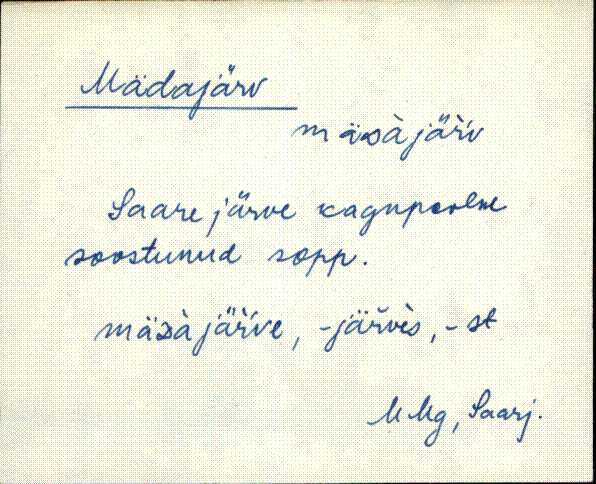 Mädajärv
mäᴅàjäŕv
Saare järve kagupoolne
soostunud sopp.
mäᴅàjäŕve, -järvès, -st
MMg, Saarj.